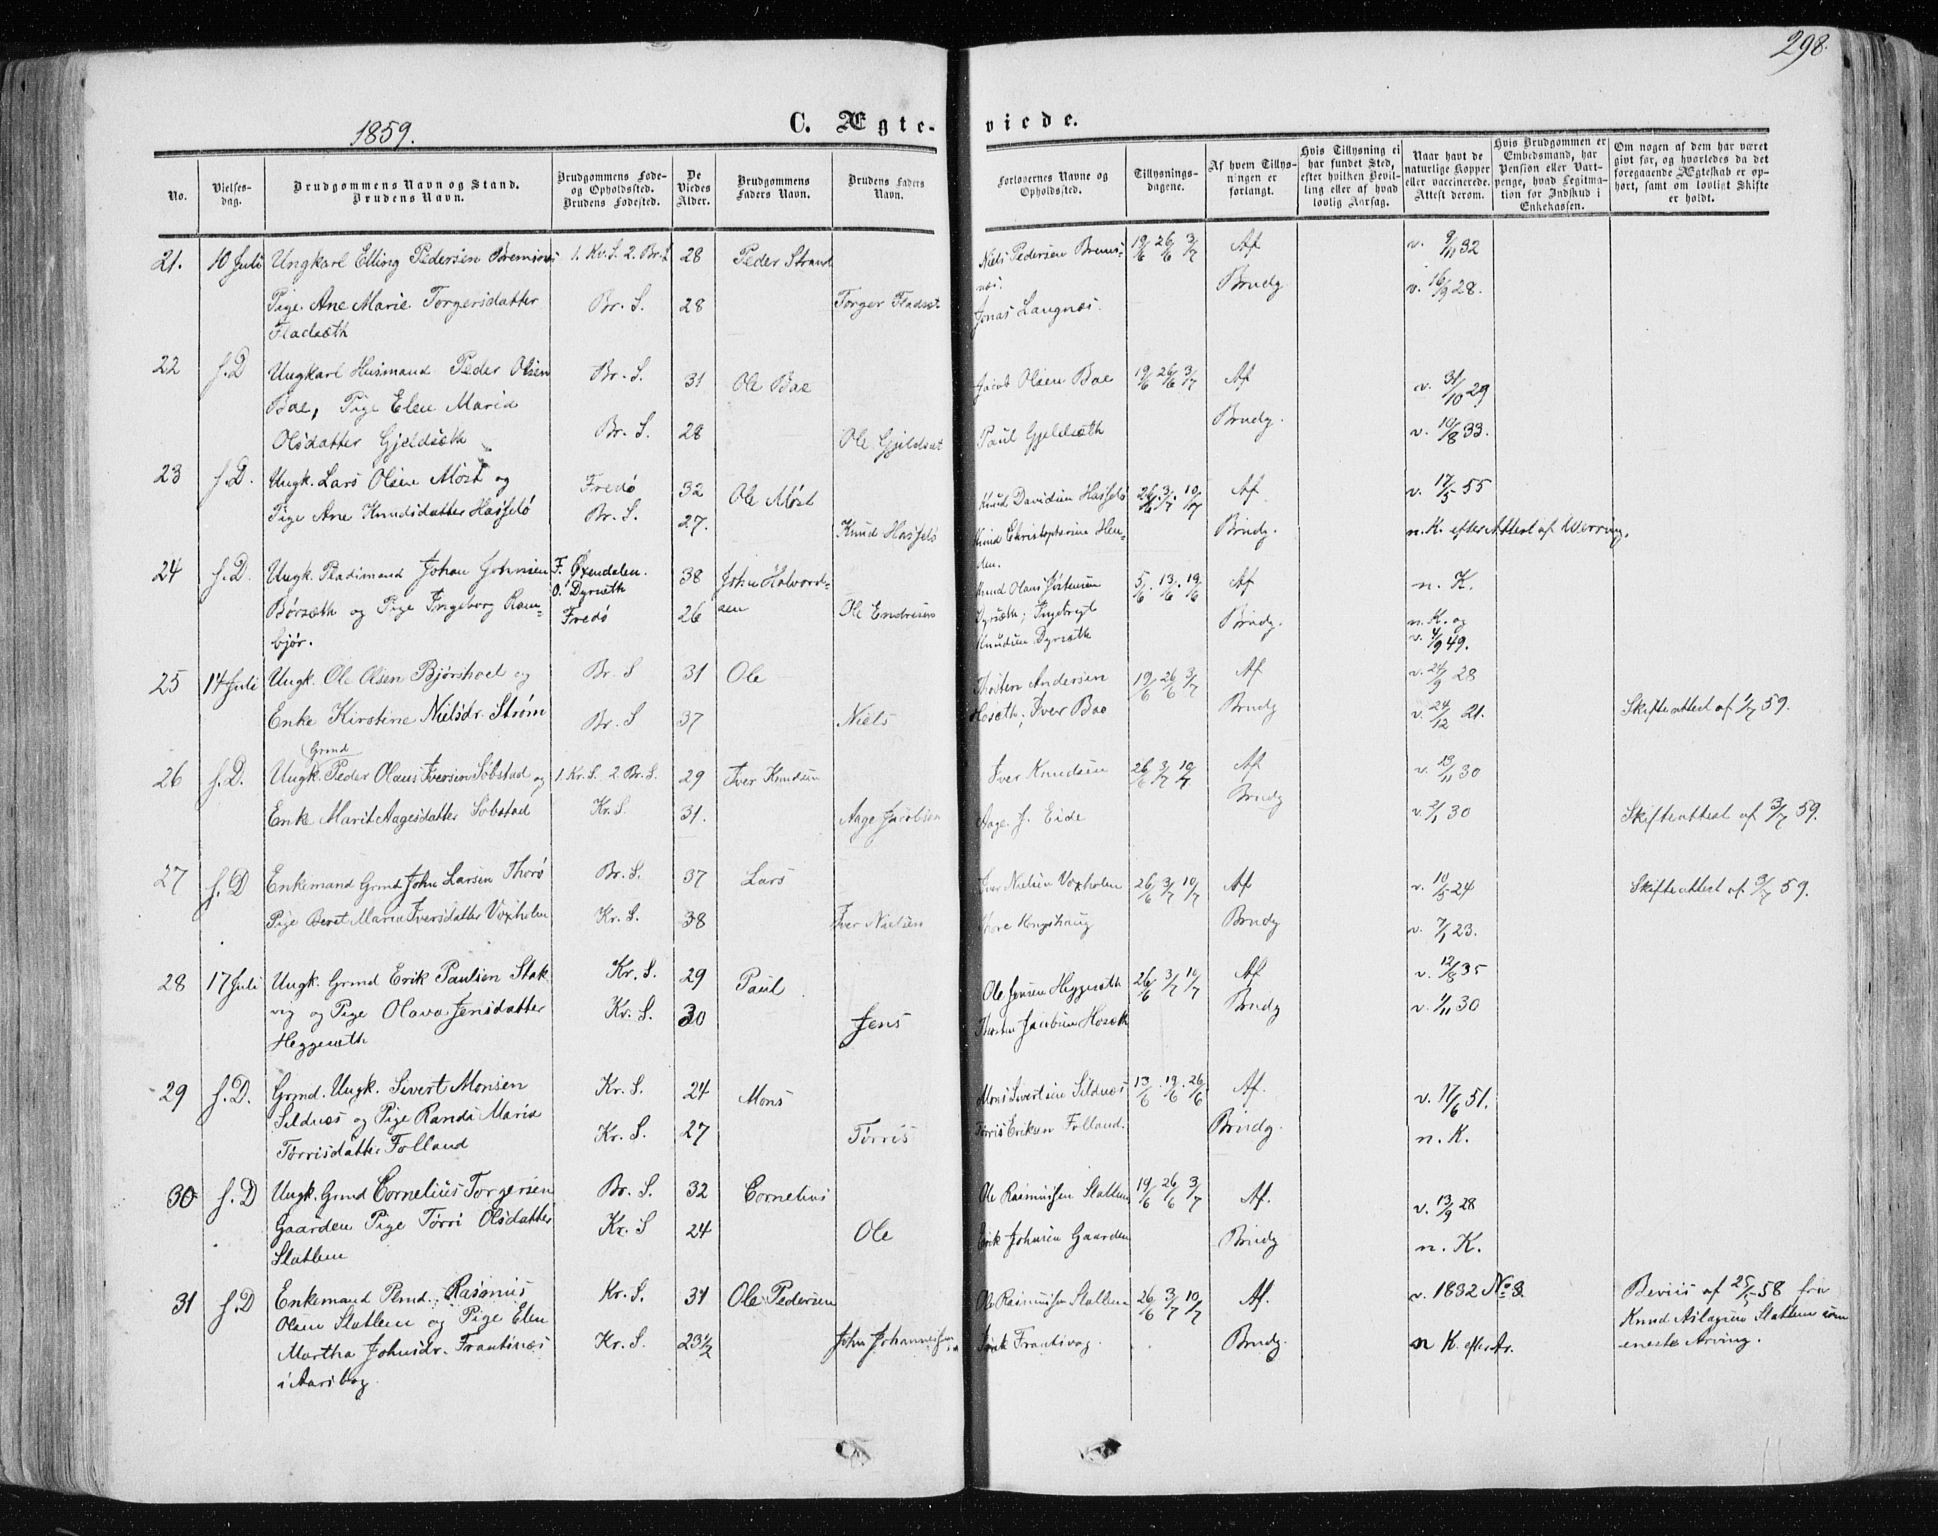 298.
1859.
C. Ægte-
viede.
No.
Vielses-
dag.
Brudgommens Navn og Stand.
Brudens Navn.
Brudgommens Føde-
og Opholdssted.
Brudens Fødested.
De
Viedes
Alder.
Brudgommens
Faders Navn.
Brudens Faders
Navn.
Forlovernes Navne og
Opholdssted.
Tillysnings-
dagene.
Af hvem Tillys-
ningen er
forlangt.
Hvis Tillysning ei
har fundet Sted,
efter hvilken Bevil-
ling eller af hvad
lovlig Aarsag.
Naar havt de
naturlige Kopper
eller vaccinerede.
Attest derom.
Hvis Brudgommen er
Embedsmand, har
Pension eller Vart-
penge, hvad Legitima-
tion for Indskud i
Enkekassen.
Om nogen af dem har været
givt før, og hvorledes da det
foregaaende Ægteskab er op-
hørt, samt om lovligt Skifte
er holdt.
21. 10 Juli Ungkarl Elling Pedersen 1. Kv. S. 2. Br. S. 28 Peder Strand Niels Pedersen Brems- 19/6 26/6 3/7 Af v. 9/11 32
næs.
Pige Ane Marie Torgersdatter Br. S. 28 Torger Fladsæt Jonas Langnæs. Brudg v. 16/9 28.
Fladsæth
22 f. D Ungkarl Husmand Peder Olsen Br. S. 31 Ole Bae Jacob Olsen Bae 19/6 26/6 3/7 Af v. 31/10 29
Bae, Pige Elen Maria
Olsdatter Gjeldsæth Br. S. 28 Ole Gjeldsæt Paul Gjeldsæth Brudg. v. 10/8 33.
23 f. D. Ungk. Lars Olsen Møst og Fredø 32 Ole Møst Knud Davidsen Hasselø 26/6. 3/7. 10/7 Af v. 17/5 55
Pige Ane Knudsdatter Hasselø Br. S. 27. Knud Hasselø Knud Christophersen Hen- Brudg. n. K. efter Attest af Werring.
den.
24 f. D. Ungk. Pladsmand Johan Johnsen F. Øxendalen. 38 John Halvord- Knud Olaus 5/6. 13/6. 19/6 Af n. K.
O. Dyrsæth
sen
Børsæth og Pige Ingeborg Ram- Fredø 26 Ole Endresen Dyrsæth; Ingebrigt Brudg. n. K. og
bjør. Knudsen Dyrsæth v. 4/9 49.
25 14 Juli Ungk. Ole Olsen Bjørshoel og Br. S 31 Ole Thosten Andersen 19/6 26/6 3/7 Af v. 24/9 28
Enke Kirstine Nielsdr. Strøm Br. S 37 Niels Hosæth; Iver Bae Brudg v. 24/12 21. Skifteattest af 1/7 59.
Grmd
26 f. D. Ungk. Peder Olaus Iversen Søbstad og 1. Kr. S. 2. Br. S. 29 Iver Knudsen Iver Knudsen 26/6 3/7 10/7 Af v. 13/11 30
Enke Marit Aagesdatter Søbstad Kr. S. 31. Aage Jacobsen Aage J. Eide Brudg v. 2/1 30 Skifteattest af 3/7 59.
27 f. D Enkemand Grmd John Larsen Thorø Br. S. 37 Lars Iver Nielsen Voxholm 26/6 3/7 10/7 Af v. 10/5 24 Skifteattest af 9/7 59.
Pige Beret Maria Iversdatter Voxholm Kr. S. 38 Iver Nielsen Thore Kongshaug Brudg v. 7/1 23.
28 17 Juli Ungk. Grmd Erik Paulsen Stak- Kr. S. 29 Paul Ole Jensen Heggesæth 26/6 3/7 10/7 Af v. 12/8 35
vig og Pige Olava Jensdatter Kv. S. 30 Jens Thosten Jacobsen Hosæth Brudg v. 4/11 30
Heggesæth
29 f. D. Grmd. Ungk. Sivert Monsen Kr. S. 24 Mons Mons Sivertsen Sildnæs 13/6. 19/6. 26/6 Af. v. 17/6 51.
Sildnæs og Pige Randi Maria
Tørrisdatter Folland Kr. S. 27 Tørris Tørris Eriksen Folland. Brudg. n. K.
30 f. D Ungk. Grmd Cornelius Torgersen Br. S. 32 Cornelius Ole Rasmussen Slatlem 19/6 26/6 3/7 Af. v. 13/9 28
Gaarden Pige Tørri Olsdatter Kr. S 24 Ole Erik Johnsen Gaarden Brudg n. K.
Slatlem
31 f. D Enkemand Plmd. Rasmus Kr. S. 31 Ole Pedersen Ole Rasmussen Slatlem 26/6 3/7 10/7 Af. v. 1832 No 3. Beviis af 25/5 58 fra
Olsen Slatlem og Pige Elen Knud Aslagsen Slatlem som
Martha Johnsdr. Frantsnæs Kr. S. 23½ John Johannessen Frantsvog. Brudg. n K. efter Ar. eneste Arving.
i Aarsbog.